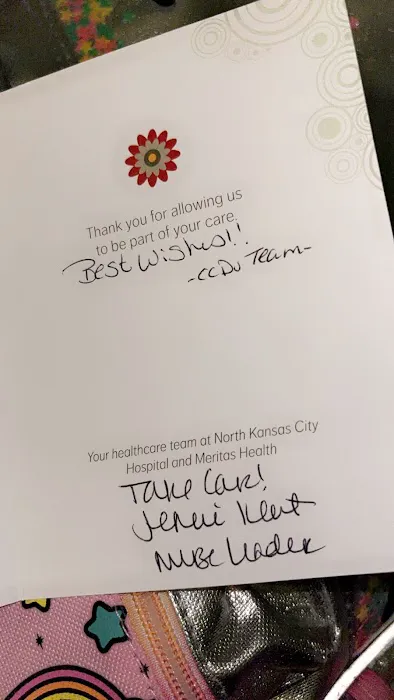 Thank you for allowing us
to be part of your care.
Best Wishes!!
-CCDU Team-
Your healthcare team at North Kansas City
Hospital and Meritas Health
Take Care!
Nurse Leader